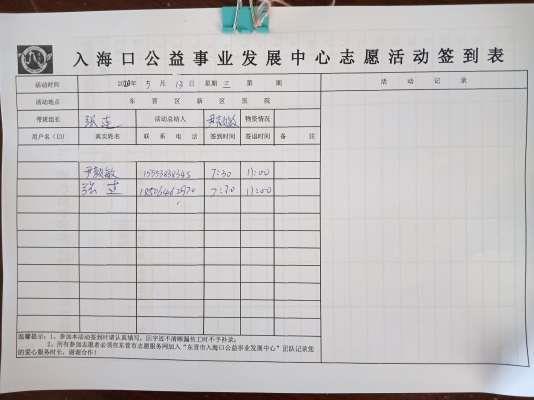 入海口公益事业发展中心志愿活动签到表
活动时间 2020年 5 月 13 日 星期 三 第 期 活动记录
活动地点 东营区新区医院
带班组长 张连 活动总结人 尹颜敏 物资情况
用户名（ID） 真实姓名 联系电话 签到时间 签退时间 备注
尹颜敏 7:30 11:00
张连 7:30 11:00
温馨提示：1、参加本活动签到时请认真填写，因字迹不清晰漏丢工时不予补录；
2、所有参加志愿者必须在东营市志愿服务网加入“东营市入海口公益事业发展中心”团队记录您
的爱心服务时长，谢谢合作！